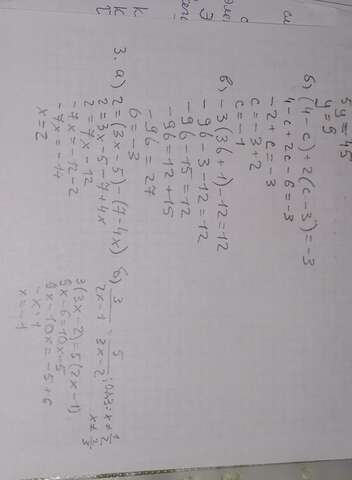 5y = 45
y = 9
б) (4-c) + 2(c-3) = -3
4-c+2c-6 = -3
-2+c = -3
c = -3+2
c = -1
в) -3(3б+1)-12=12
-9б-3-12=12
-9б-15=12
-9б=12+15
-9б=27
б=-3
3. а) 2=(3x-5)-(7-4x)
2=3x-5-7+4x
2=7x-12
-7x=-12-2
-7x=-14
x=2
б) 3/(2x-1) = 5/(3x-2); ОДЗ: x≠1/2
x≠2/3
3(3x-2)=5(2x-1)
9x-6=10x-5
9x-10x=-5+6
-x=1
x=-1